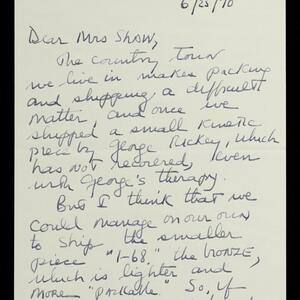 6/25/70
Dear Mrs Shaw,
The country town
we live in makes packing
and shipping a difficult
matter, and once we
shipped a small kinetic
piece by George Rickey, which
has not recovered, even
with George's therapy.
But I think that we
could manage on our own
to ship the smaller
piece "1-68," the bronze,
which is lighter and
more "packable." So, if